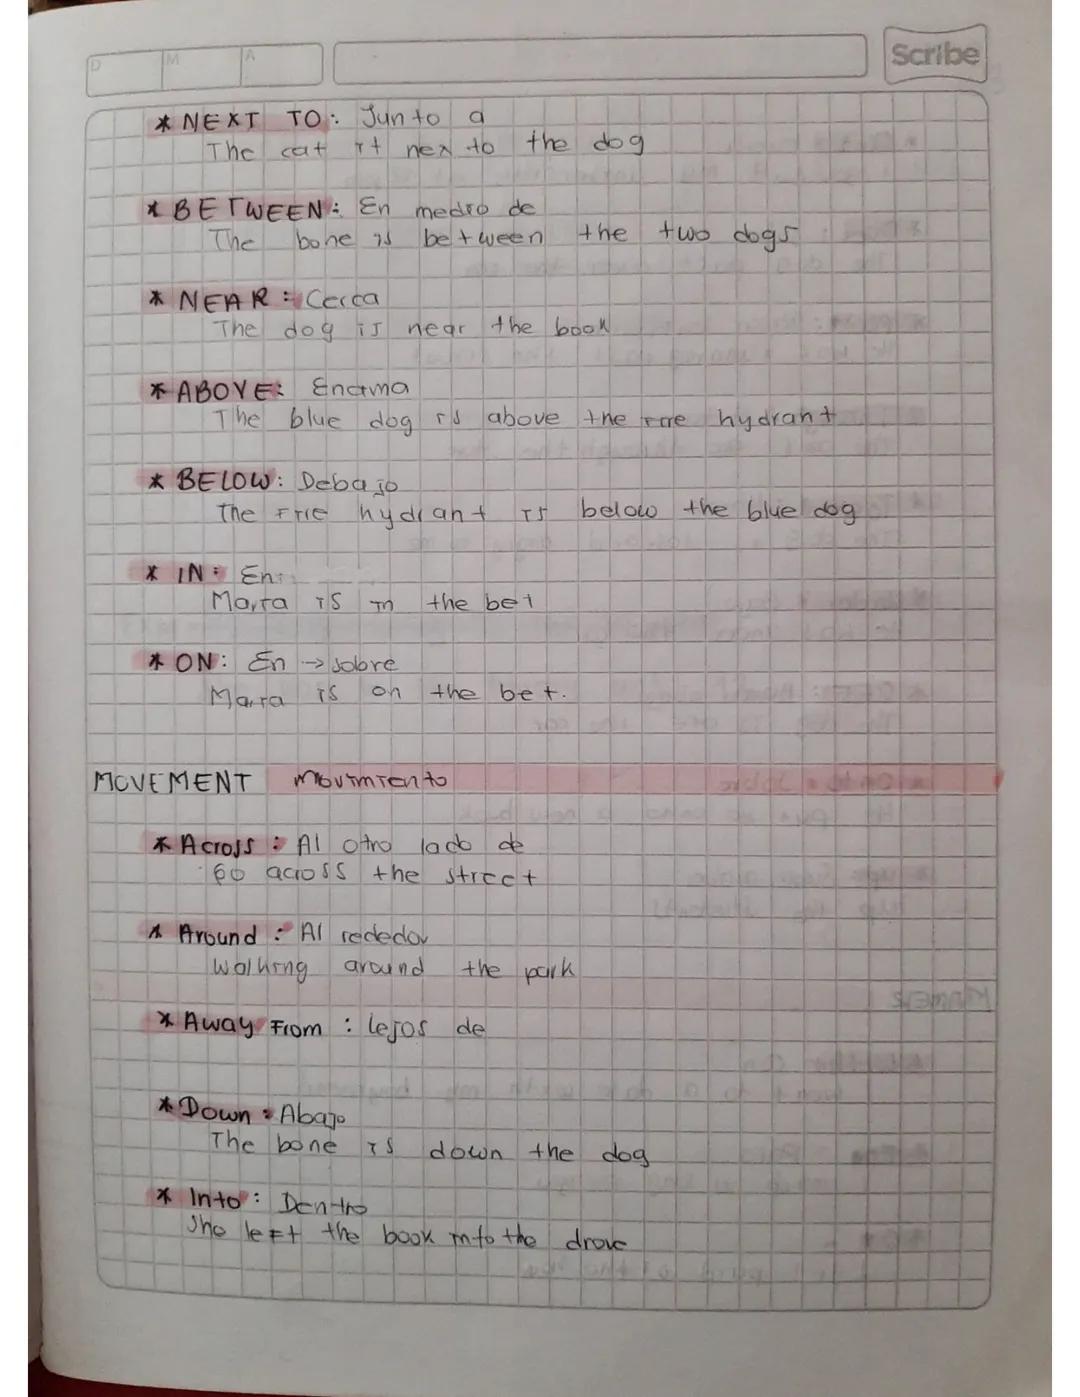 D M A
Scribe
* NEXT TO: Junto a
The cat it nex to the dog
* BETWEEN: En medio de
The bone is between the two dogs
* NEAR: Cerca
The dog is near the book
* ABOVE: Encima
The blue dog is above the fire hydrant
* BELOW: Debajo
The Fire hydrant is below the blue dog
* IN: En
Maria is in the bet
* ON: En → sobre
Maria is on the bet.
MOVEMENT Movimiento
* Across: Al otro lado de
Go across the street
* Around: Al rededor
Walking around the park
* Away From: lejos de
* Down: Abajo
The bone is down the dog
* Into: Dentro
She left the book into the drove